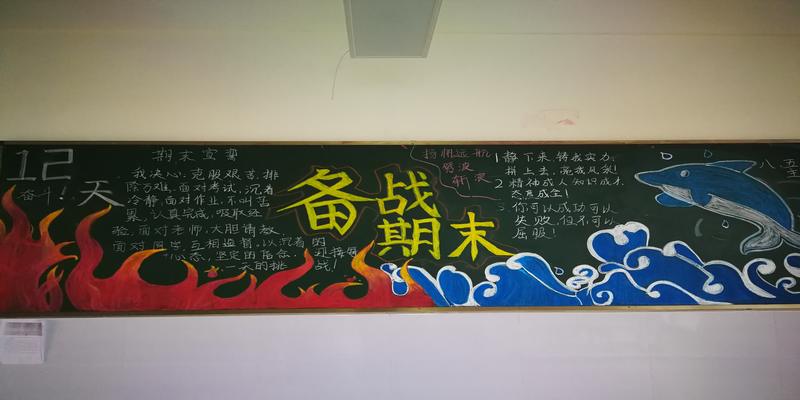 12
天
奋斗!
期末宣誓
我决心:克服艰苦,排
除万难,面对考试,沉着
冷静,面对作业,不叫苦
累,认真完成,吸取经
验,面对老师,大胆请教
面对同学,互相追督,以沉着的
心态,坚定的信念,迎接每
一天的挑战!
备战
期末
扬帆远航
劈波
斩浪
1静下来,铸我实力;
拼上去,亮我风采!
2精神成人知识成才
态度成全!
3.你可以成功可以
失败,但不可以
屈服!
八五
至